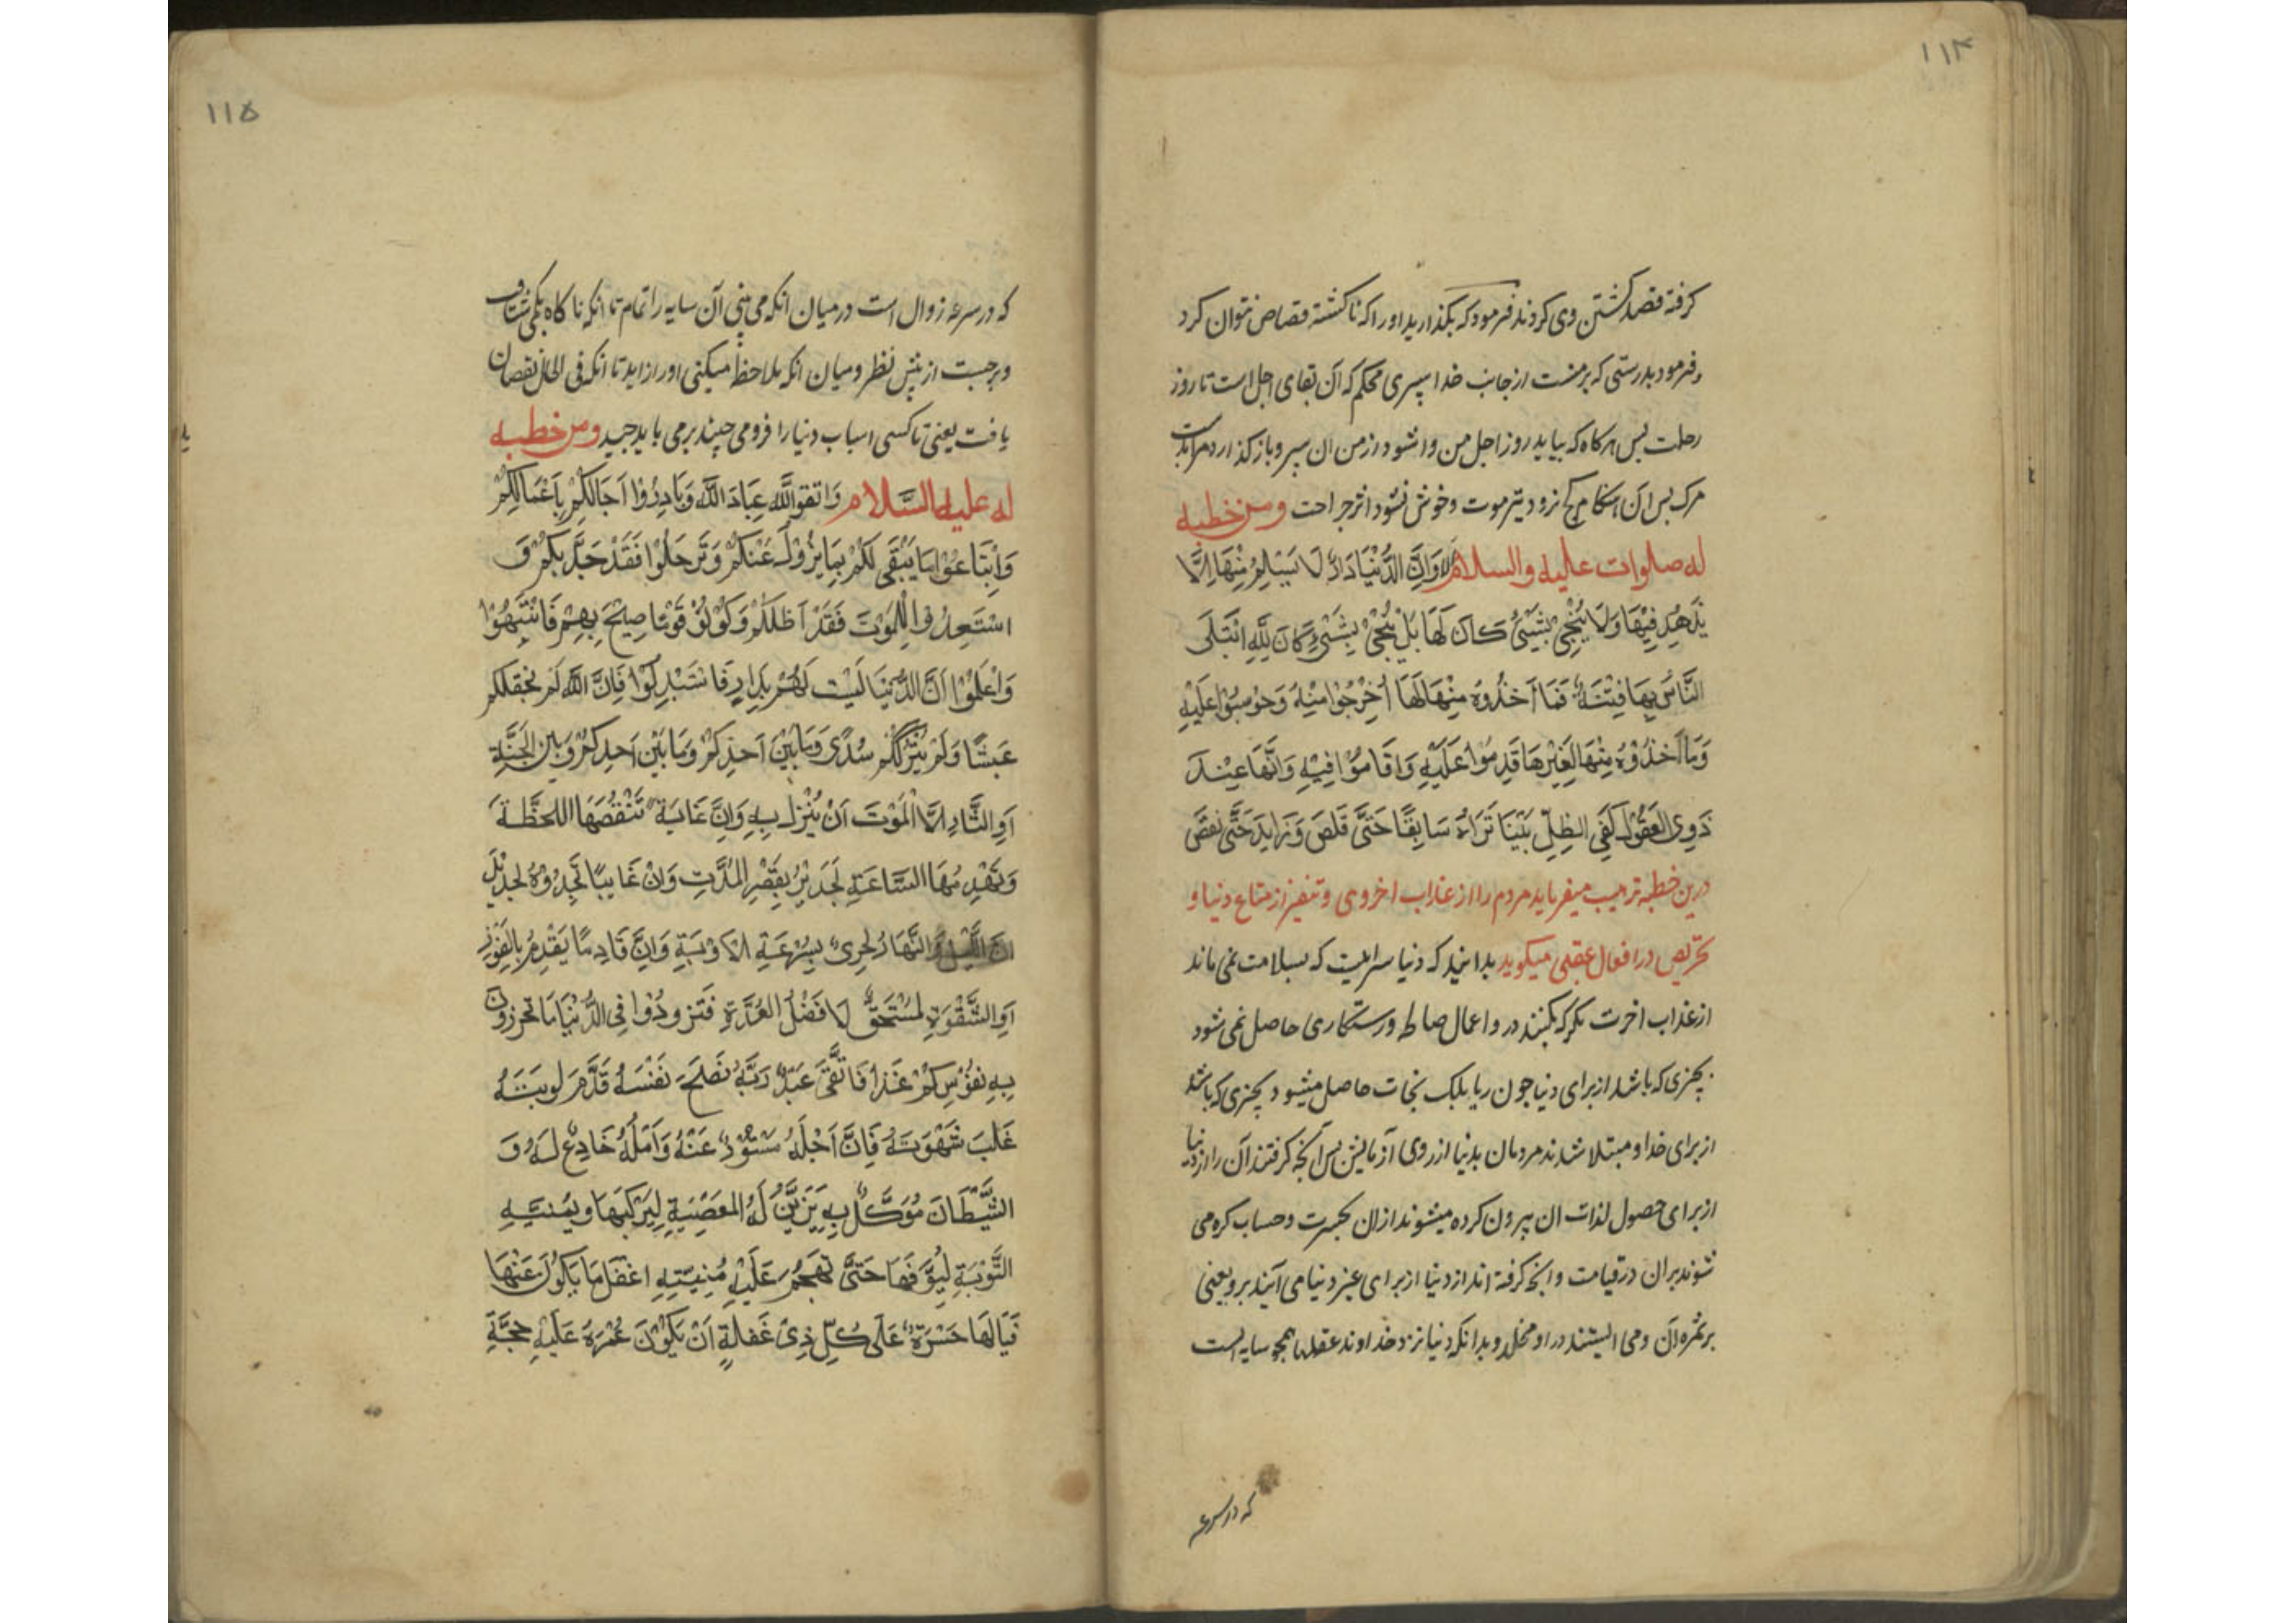 ۱۱۴
کرفته قصد کشتن وی کردند فرمود که بگذارید او را که ناکشته قصاص نتوان کرد
و فرمود بدرستی که بر منست از جانب خدا سپری محکم که آن بقای اجل است تا روز
رحلت پس هرکاه که بیاید روز اجل من وا شود از من ان سپر و باز کذارد مرا بدست
مرک پس آن هنکام کج نرود تیر موت و خوش نشود اثر جراحت ومن خطبه
له صلوات علیه والسلام الا وَاِنَّ الدُّنْیَا دَارٌ لَا یَسْلِمُ مِنْهَا اِلَّا
یَزْهُدِ فِیْهَا وَلَا یُنْجِیْ بِشَیْئٍ کَانَ لَهَا بَلْ یُنْجِیْ بِشَیْءٍ کَانَ لِلّٰهِ ابْتَلَی
النَّاسَ بِهَا فِتْنَةً فَمَا اَخَذُوهُ مِنْهَا لَهَا اُخْرِجُوا مِنْهُ وَحُوسِبُوا عَلَیْهِ
وَمَا اَخَذُوْهُ مِنْهَا لِغَیْرِهَا قَدِمُوا عَلَیْهِ وَاقَامُوا فِیْهِ وَاِنَّهَا عِنْدَ
ذَوِی العَقُوْلِ کَفَیِ الظِلِّ بَیْنَا تَرَاهُ سَابِقًا حَتَّی قَلَصَ وَزَایِدَ حَتَّی نَقَصَ
درین خطبه ترهیب میفرماید مردم را از عذاب اخروی و تنفیر از متاع دنیا و
تحریص در افعال عقبی میکوید بدانید که دنیا سرایست که بسلامت نمی ماند
از عذاب اخرت مکر که بکنند در و اعمال صالحه و رستکاری حاصل نمی شود
بچیزی که باشد از برای دنیا جون ریا بلک نجات حاصل میشود بچیزی که باشد
از برای خدا و مبتلا شدند مردمان بدنیا از روی آزمایش پس آنچه کرفتند آن را از دنیا
از برای حصول لذات ان بیرون کرده میشوند ازان بحسرت و حساب کره می
شوند بران در قیامت و انچه کرفته اند از دنیا از برای غیر دنیا می آیند برو یعنی
بر ثمره آن و می ایستند در او مخلد و بدانکه دنیا نزد خداوند عقلها همچو سایه است
که در سرعه
۱۱۵
که در سرعه زوال است در میان انکه می بینی آن سایه را تمام تا انکه ناکاه بکمی شتافت
و برجست از پیش نظر و میان انکه ملاحظه میکنی او را زاید تا انکه فی الحال نقصان
یافت یعنی تا کسی اسباب دنیا را فرو می چیند بر می باید جید ومن خطبه
له علیه السَّلام وَاتقوا اللّٰه عِبَادَ اللّٰه وَبَادِرُوْا اَجَالَکُمْ بِاَعْمَالِکُمْ
وَابْتَاعُوْا مَا یَبْقَی لَکُمْ بِمَا یَزُوْلُ عَنْکُمْ وَتَرَحَلُوْا فَقَدْ جَدَّ بِکُمْ وَ
اسْتَعِدُوا لِلْمَوْتِ فَقَدْ اَظَلَکُمْ وَکُوْنُوْ قَوْمًا صِیْحَ بِهِمْ فَانْتَبِهُوْا
وَاعْلَمُوْا اَنَّ الدُّنْیَا لَیْسَت لَهُمْ بِدَارٍ فَاسْتَبْدِلُوْا فَاِنَّ اللّٰهَ لَمْ یَخْقلکم
عَبَثًا وَلَمْ یَتْرُکْکُمْ سُدًی وَمَا بَیْنَ اَحَدِکُمْ وَمَا بَیْنَ اَحَدِکُمْ وَبَیْنَ الجَنَّةِ
اَوِ النَّارِ اِلَّا الْمَوْتَ اَنْ یُنْزِلَ بِهِ وَاِنَّ غَایَةً تَنْقُصُهَا اللحْظَةَ
وَتَهْدِمُهَا السَّاعَةِ لَجَدِیْرٌ بِقَصْرِ المُدَّتِ وَاِنْ غَایبًا تَجِدُوْهُ لَجدِیْل
ان اللَّیْلُ وَالنَّهَارُ لحِرِیٌ بِسُرْعَةِ الاَوْبَةِ وَاِنَّ قَادِمًا یَقْدِمُ بِالفَوْزِ
اَوِ الشَّقْوَةِ لمُسْتَحَقٌ لَافضَلِ العُدَّةِ فَتَزوَدُوْا فِی الدُّنْیَا مَا تحرزون
بِهِ نفُوْسکُمْ غَدًا فَاتَّقَی عَبْدٌ رَبَّهُ نَصَحَ نَفْسَهُ قَدَّمَ لوبَتَهُ
غَلَبَ شَهْوَتَهُ فَاِنَّ اَجَلَهُ مستُوْرٌ عَنْهُ وَاَمَلُهُ خَادِعٌ لَهُ وَ
الشَّیْطَانَ مُوَکَّلٌ بِهِ یَزَیِّنُ لَهُ المَعْصِیَةِ لِیَرْکَبَهَا وَیمَنیهِ
التَّوْبَةِ لِیُسَوِّفَهَا حَتَّی تَهجُمَ عَلَیْهِ مُنیَتهِ اغْفَلَ مَا یَکُوْنُ عَنْهَا
فَیَا لَهَا حَسْرَةً عَلَی کُلِّ ذِیْ غَفلَةٍ اَنْ یَکُوْنَ عُمْرَهُ عَلَیْهِ حجَّةٍ